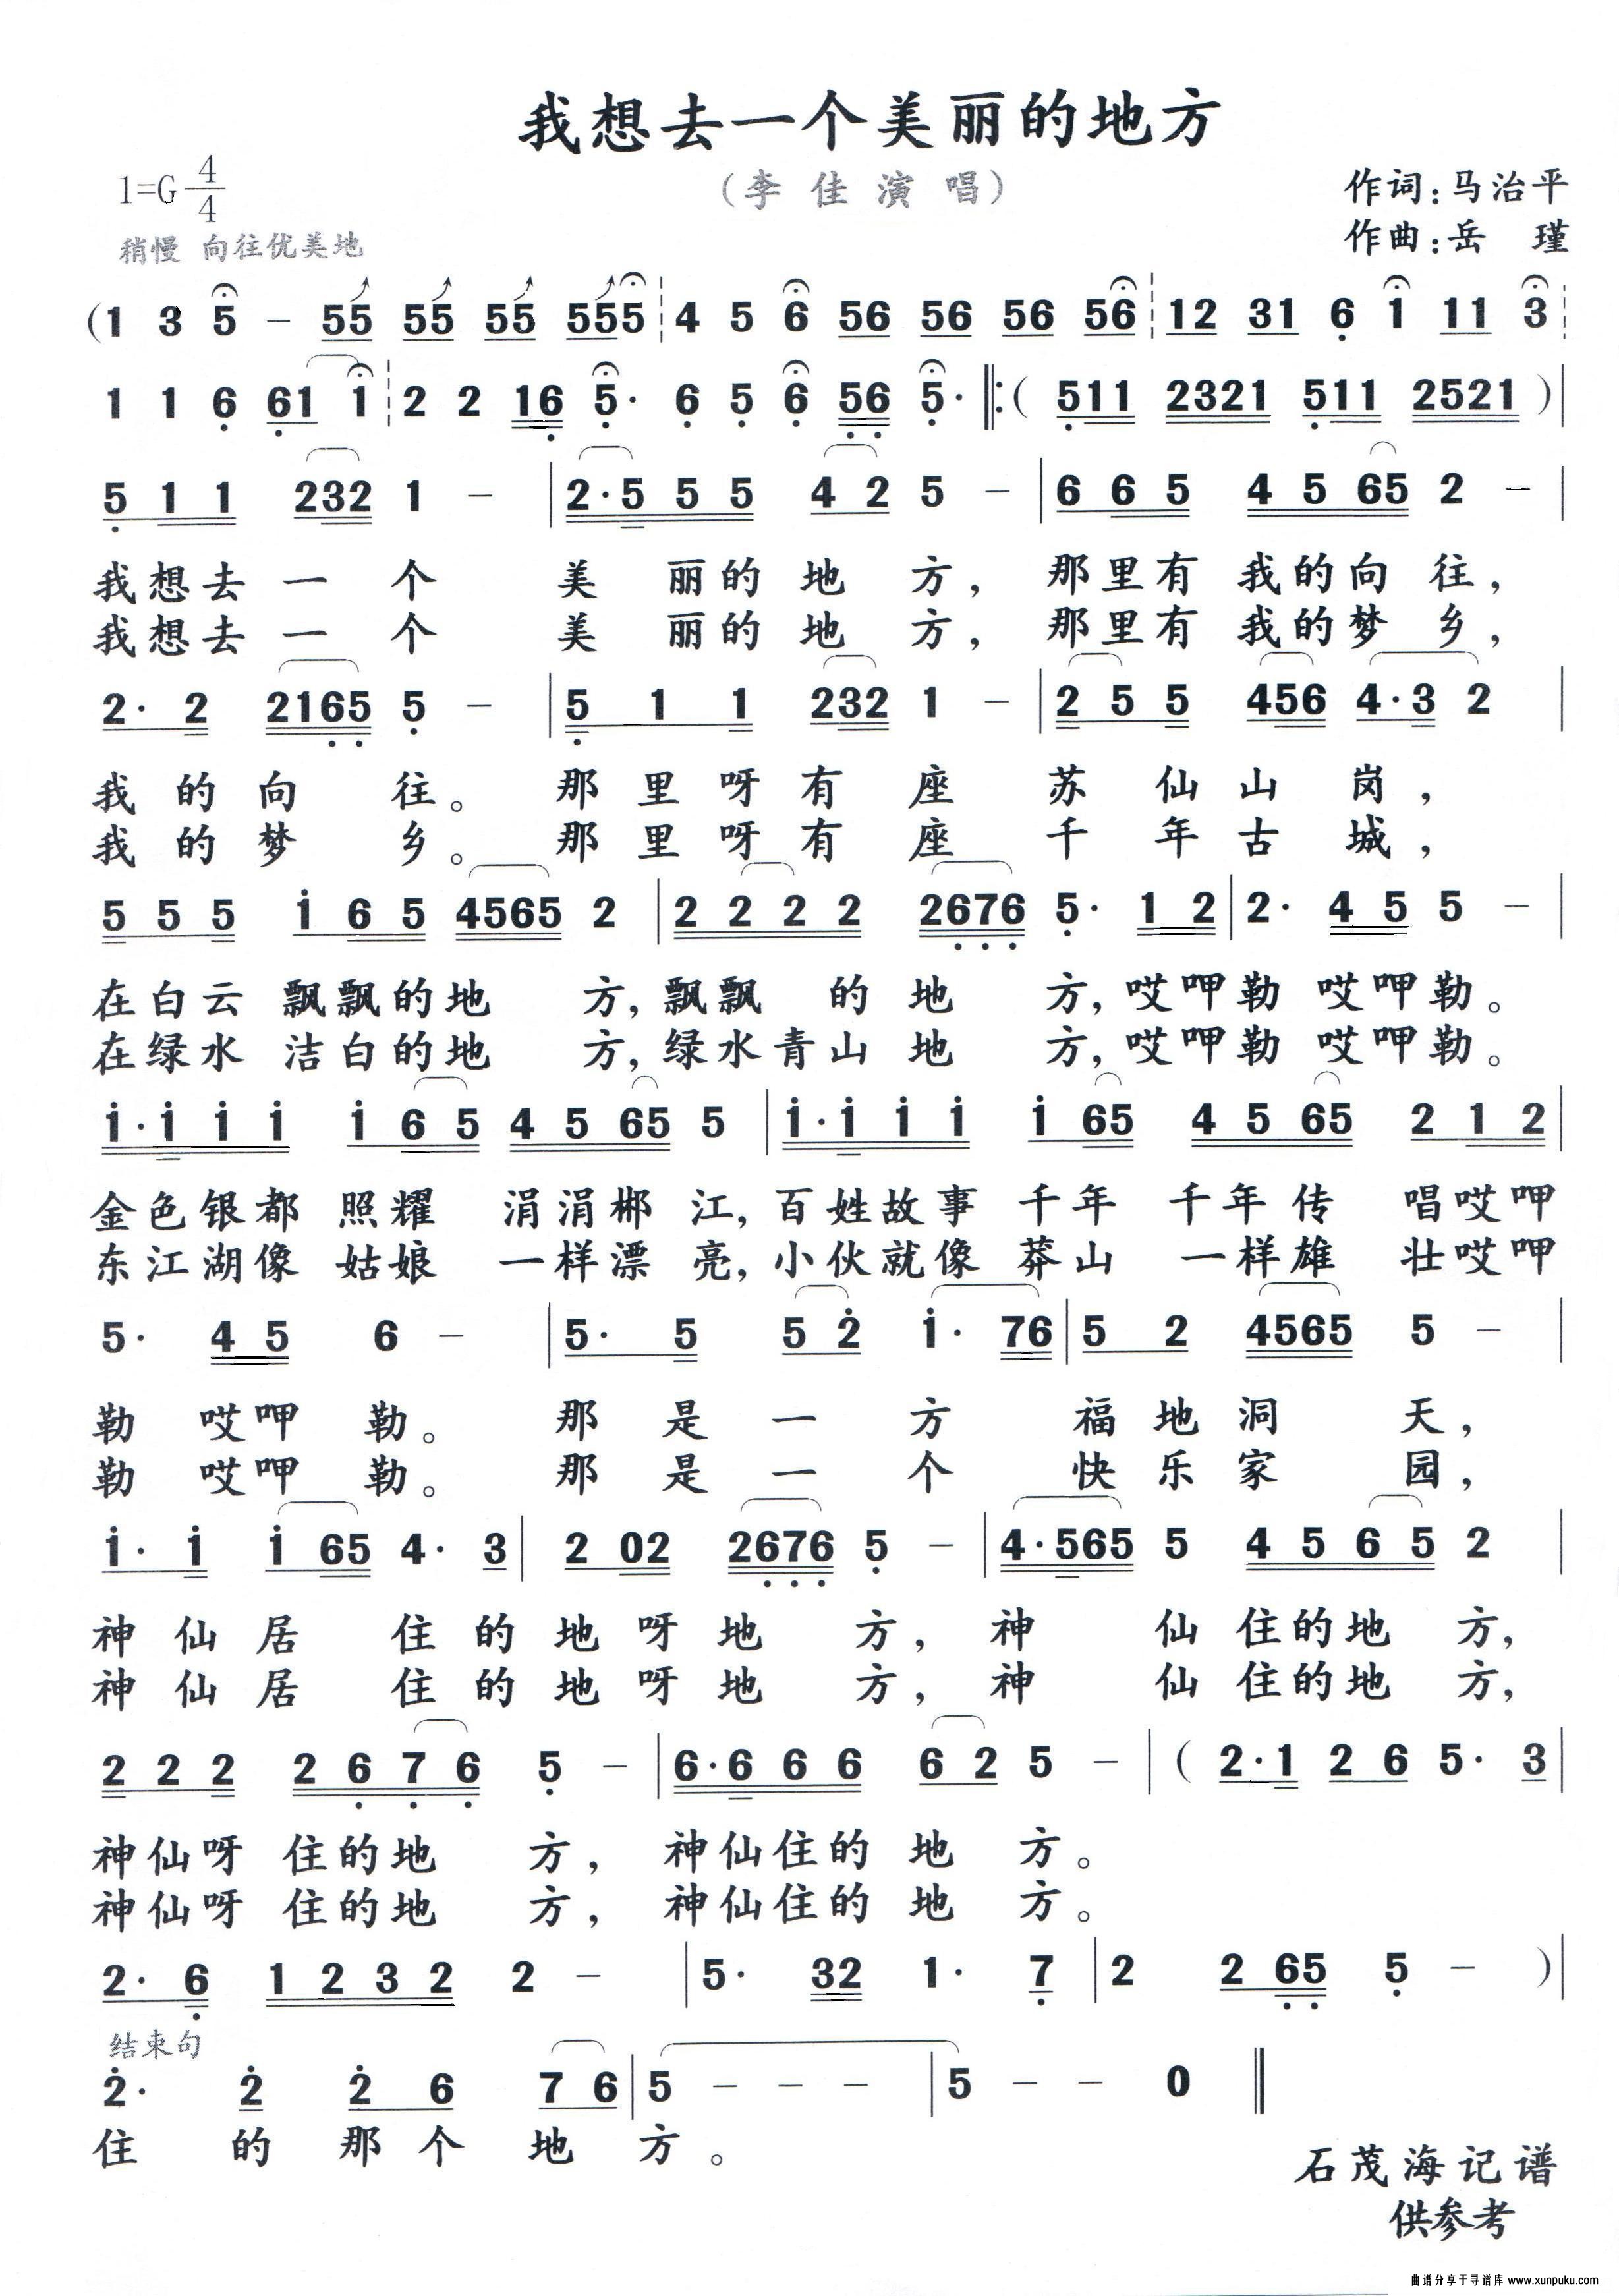 我想去一个美丽的地方
1=G 4/4
(李佳演唱)
作词:马治平
稍慢 向往优美地
作曲:岳 瑾
(1 3 5 - 55 55 55 555 4 5 6 56 56 56 56 12 31 6 1 11 3
1 1 6 61 1 2 2 16 5· 6 5 6 56 5· ‖:( 511 2321 511 2521 )|
5 1 1 232 1 - | 2·5 5 5 4 2 5 - | 6 6 5 4 5 65 2 - |
我想去一个 美丽的地方,那里有我的向往,
我想去一个 美丽的地方,那里有我的梦乡,
2· 2 2165 5 - | 5 1 1 232 1 - | 2 5 5 456 4·3 2 |
我的向往。那里呀有座苏仙山岗,
我的梦乡。那里呀有座千年古城,
5 5 5 i 6 5 4565 2 | 2 2 2 2 2676 5· 1 2 | 2· 4 5 5 - |
在白云飘飘的地方,飘飘的地方,哎呷勒哎呷勒。
在绿水洁白的地方,绿水青山地方,哎呷勒哎呷勒。
i·i i i i 6 5 4 5 65 5 | i·i i i i 65 4 5 65 2 1 2 |
金色银都照耀涓涓郴江,百姓故事千年千年传唱哎呷
东江湖像姑娘一样漂亮,小伙就像莽山一样雄壮哎呷
5· 4 5 6 - | 5· 5 5 2 i· 76 | 5 2 4565 5 - |
勒哎呷勒。那是一方福地洞天,
勒哎呷勒。那是一个快乐家园,
i· i i 65 4· 3 | 2 02 2676 5 - | 4·565 5 4 5 6 5 2 |
神仙居住的地呀地方,神仙住的地方,
神仙居住的地呀地方,神仙住的地方,
2 2 2 2 6 7 6 5 - | 6·6 6 6 6 2 5 - | ( 2·1 2 6 5· 3 |
神仙呀住的地方,神仙住的地方。
神仙呀住的地方,神仙住的地方。
2· 6 1 2 3 2 2 - | 5· 32 1· 7 | 2 2 65 5 - )|
结束句
2· 2 2 6 7 6 | 5 - - - | 5 - - 0 ‖
住的那个地方。
石茂海记谱
供参考
曲谱分享于寻谱库 www.xunpuku.com